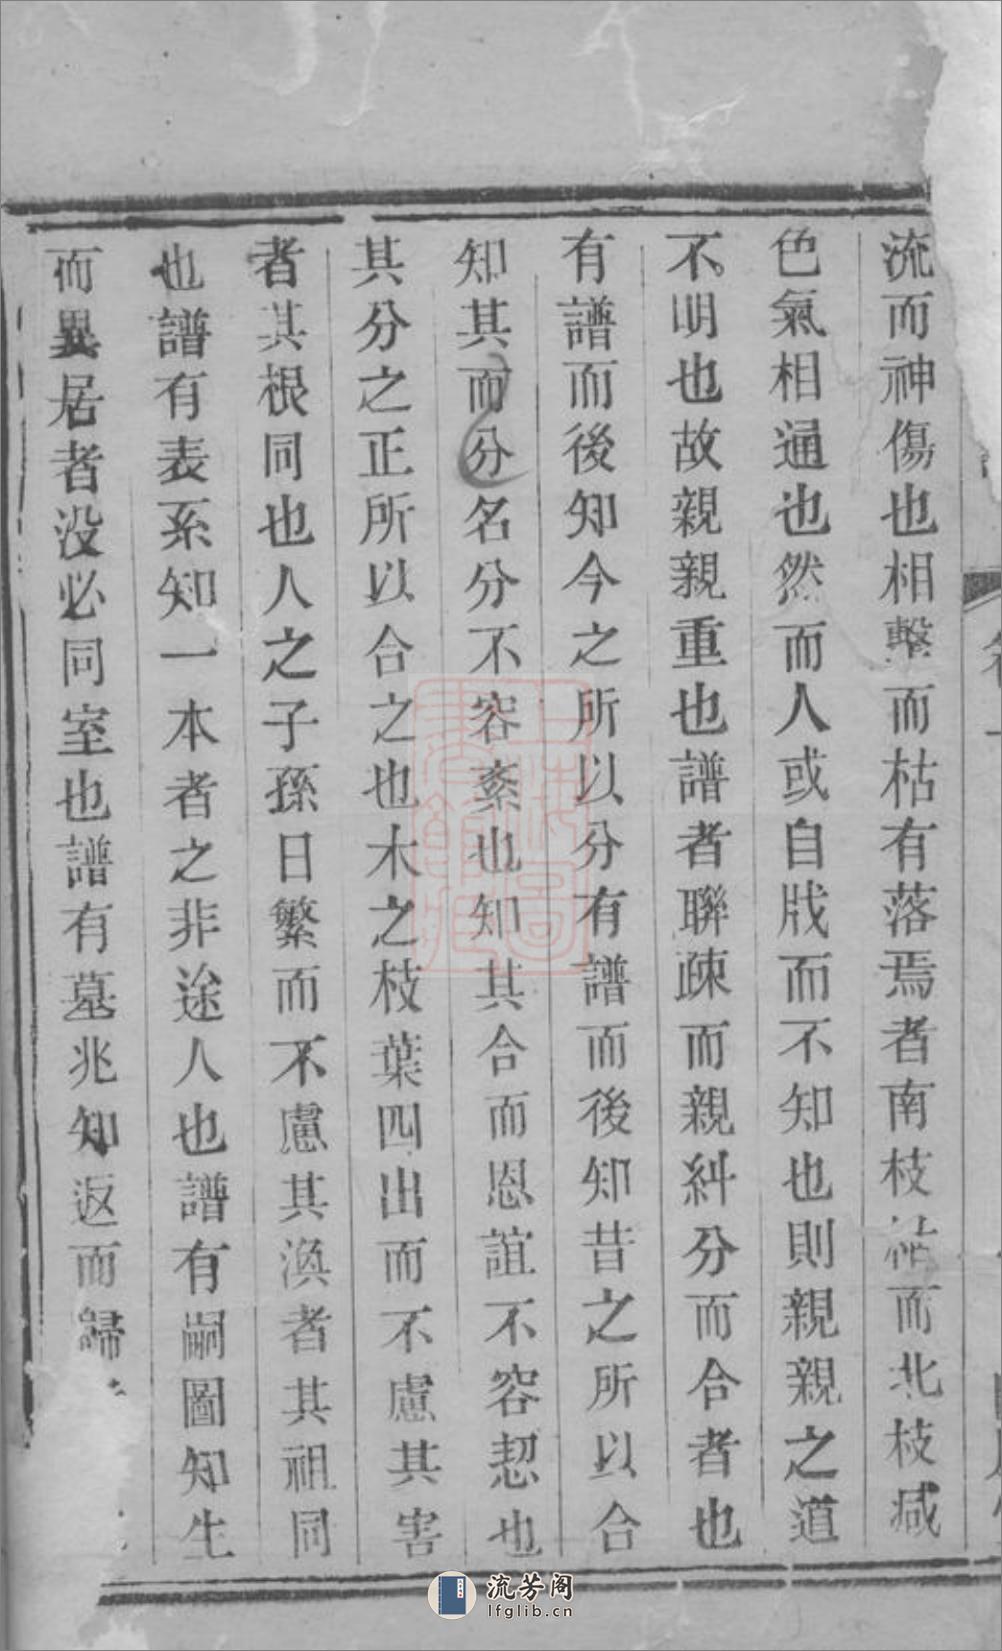 流而神傷也相繫而枯有落焉者南枝祜而北枝减
色氣相通也然而人或自戕而不知也則親親之道
不明也故親親重也譜者聯疎而親糾分而合者也
有譜而後知今之所以分有譜而後知昔之所以合
知其而分名分不容紊也知其合而恩誼不容恝也
其分之正所以合之也木之枝葉四出而不慮其害
者其根同也人之子孫日繁而不慮其渙者其祖同
也譜有表系知一本者之非途人也譜有嗣圖知生
而異居者没必同室也譜有墓兆知返而歸
流芳阁
lfglib.cn